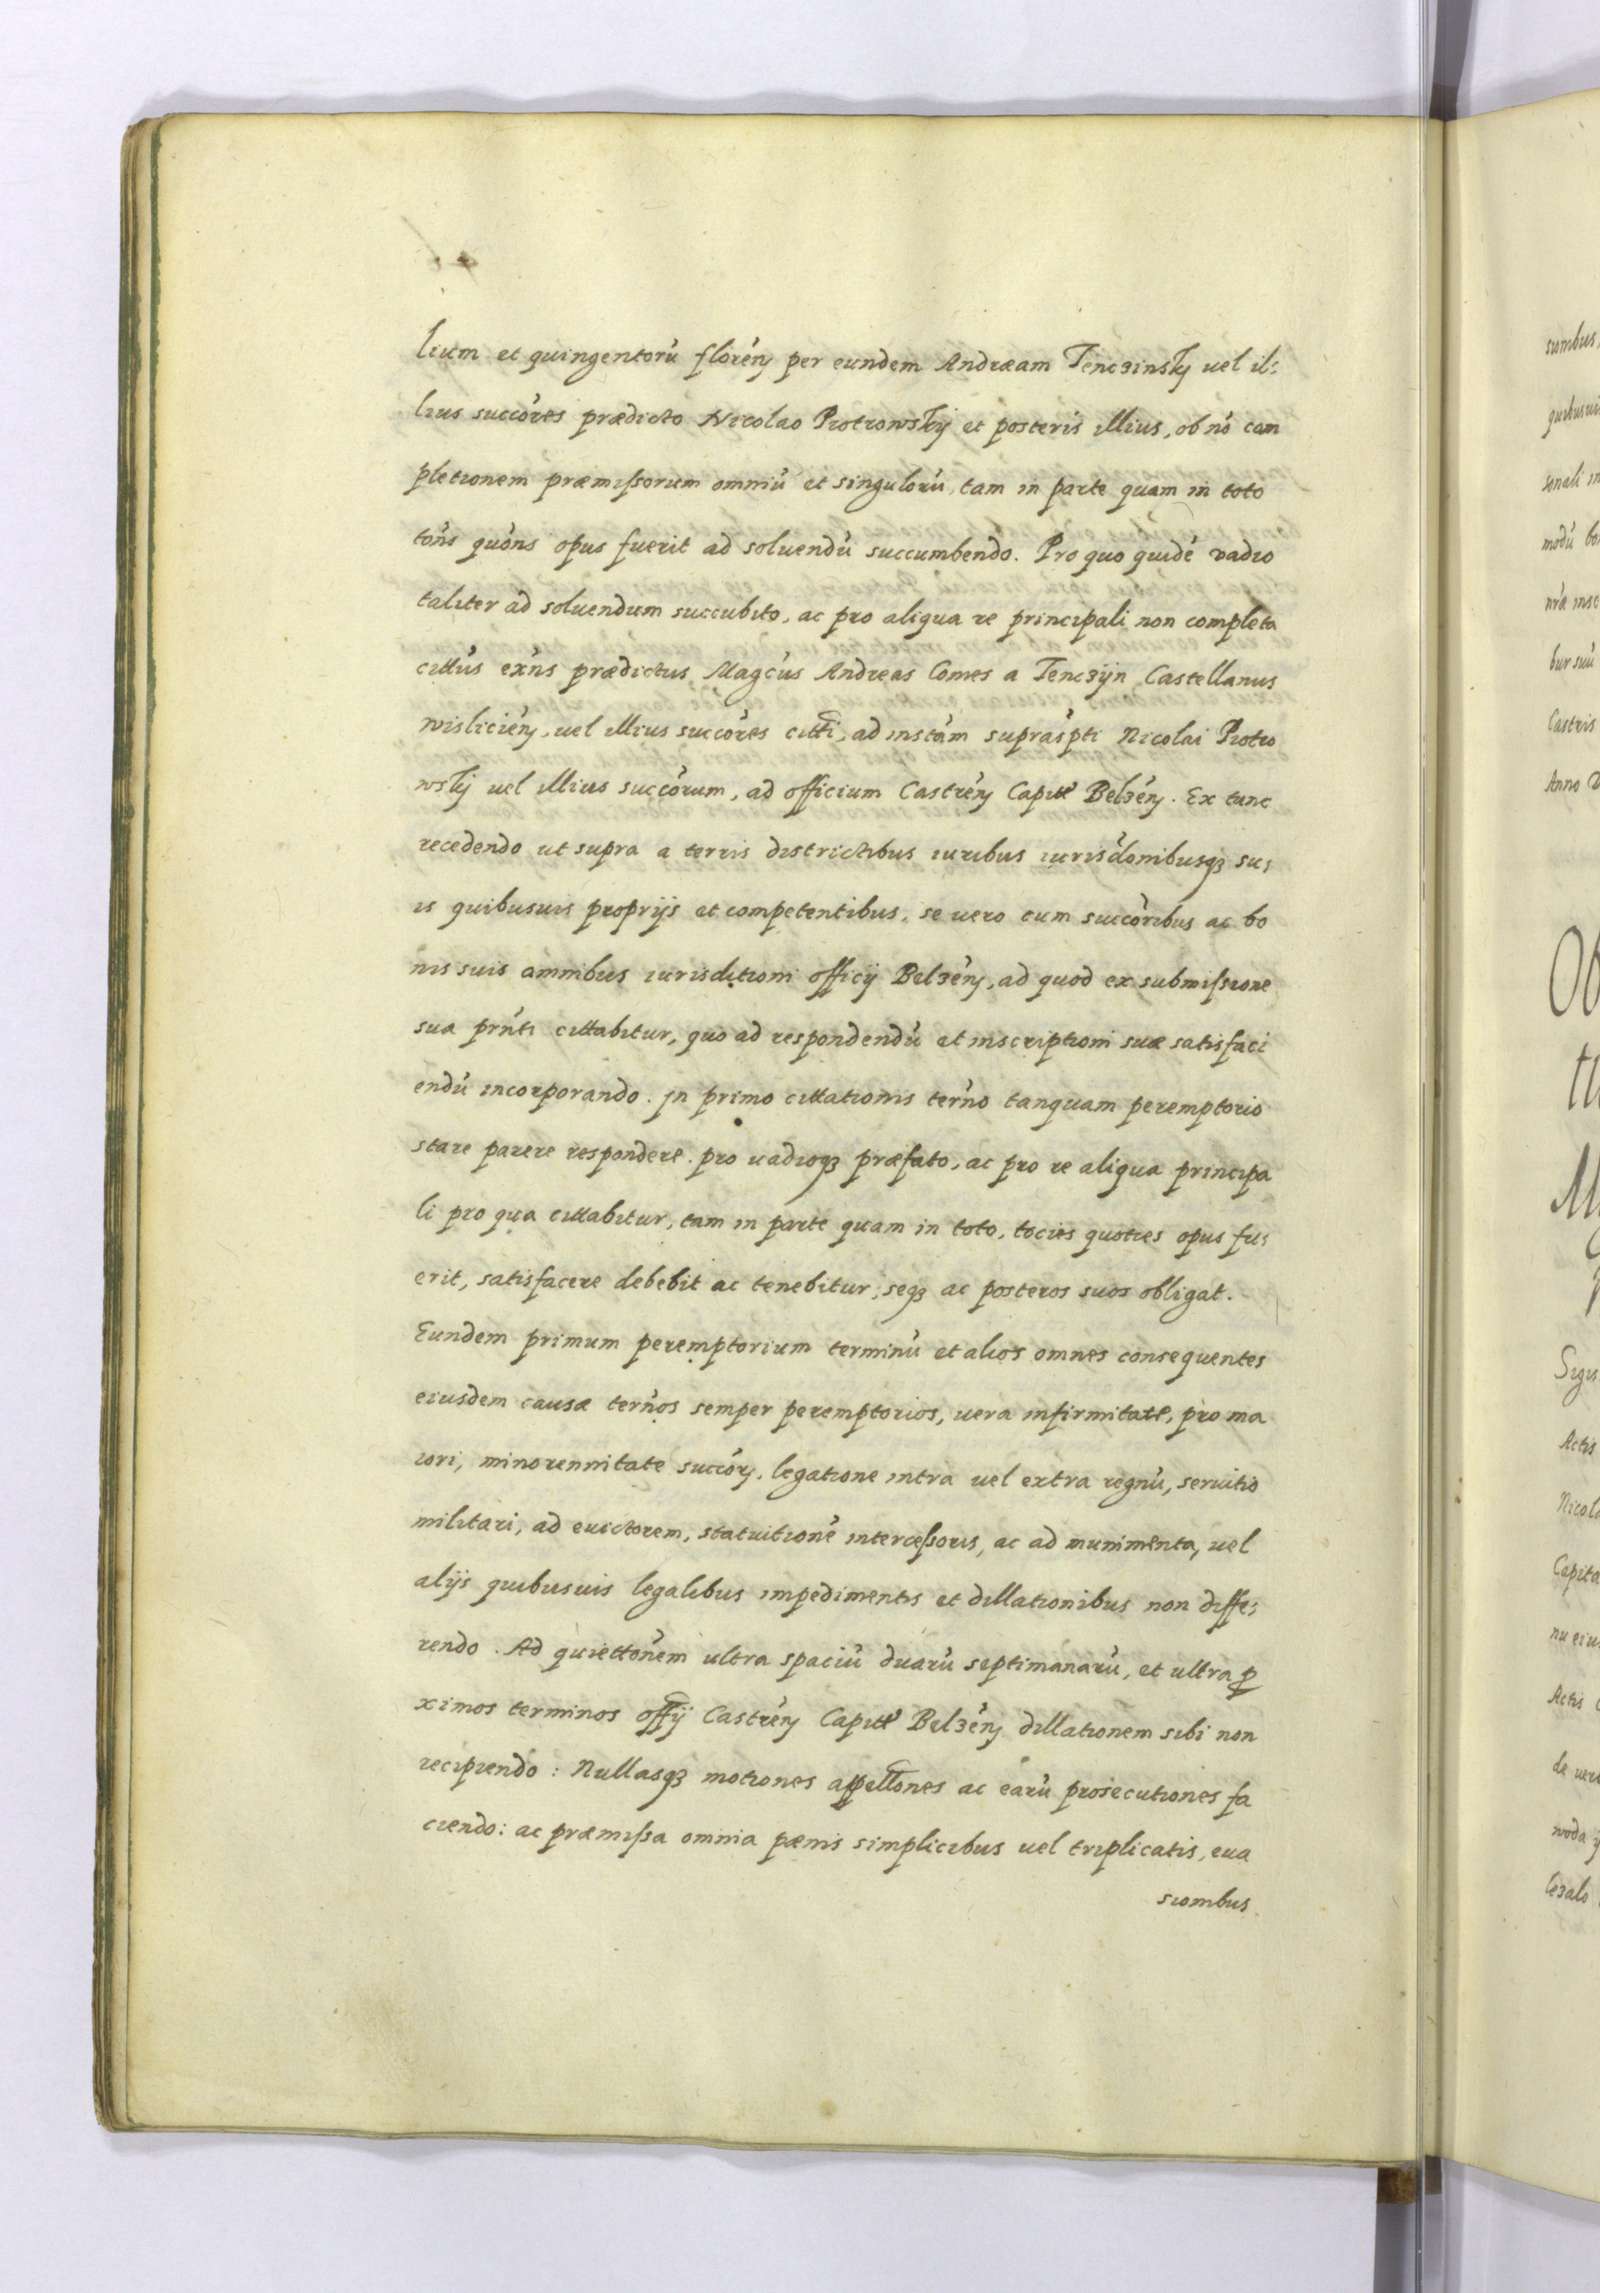 lium et quingentorū florēn per eundem Andræam Tenczinskij uel il:
lius succōres prædicto Nicolao Piotrowskij et posteris illius, ob nō com
pletionem præmissorum omniū et singulorū, tam in parte quam in toto
tōns quōns opus fuerit ad soluendū succumbendo. Pro quo quidē vadio
taliter ad soluendum succubito, ac pro aliqua re principali non completa
cittūs exn̄s prædictus Magcūs Andreas Comes a Tenczijn Castellanus
wisliciēn, uel illius succōres citti, ad instām suprasp̄ti Nicolai Piotro
wskij uel illius succōrum, ad officium Castrēn Capitt Belzēn. Ex tunc
recedendo ut supra a terris districtibus iuribus iurisdōnibusqȝ su:
is quibusuis proprijs et competentibus, se uero cum succōribus ac bo
nis suis omnibus iurisditioni officij Belzēn, ad quod ex submissione
sua prn̄ti cittabitur, quo ad respondendū et inscriptioni suæ satisfaci
endū incorporando. Jn primo cittationis term̄o tanquam peremptorio
stare parere respondere. pro uadioqȝ præfato, ac pro re aliqua principa
li pro qua cittabitur, tam in parte quam in toto, tocies quoties opus fu:
erit, satisfacere debebit ac tenebitur, seqȝ ac posteros suos obligat.
Eundem primum peremptorium terminū et alios omnes consequentes
eiusdem causæ term̄os semper peremptorios, uera infirmitate, pro ma
iori, minorennitate succōrȝ, legatione intra uel extra regnū, seruitio
militari, ad euictorem, statuitionē intercessoris, ac ad munimenta, uel
alijs quibusuis legalibus impedimentis et dillationibus non diffe:
rendo. Ad quiettōnem ultra spaciū duarū septimanarū, et ultra ꝓ
ximos terminos offij Castrēn Capitt Belzēn dillationem sibi non
recipiendo: Nullasqȝ motiones appellōnes ac earū prosecutiones fa
ciendo: ac præmissa omnia pænis simplicibus uel triplicatis, eua
sionibus